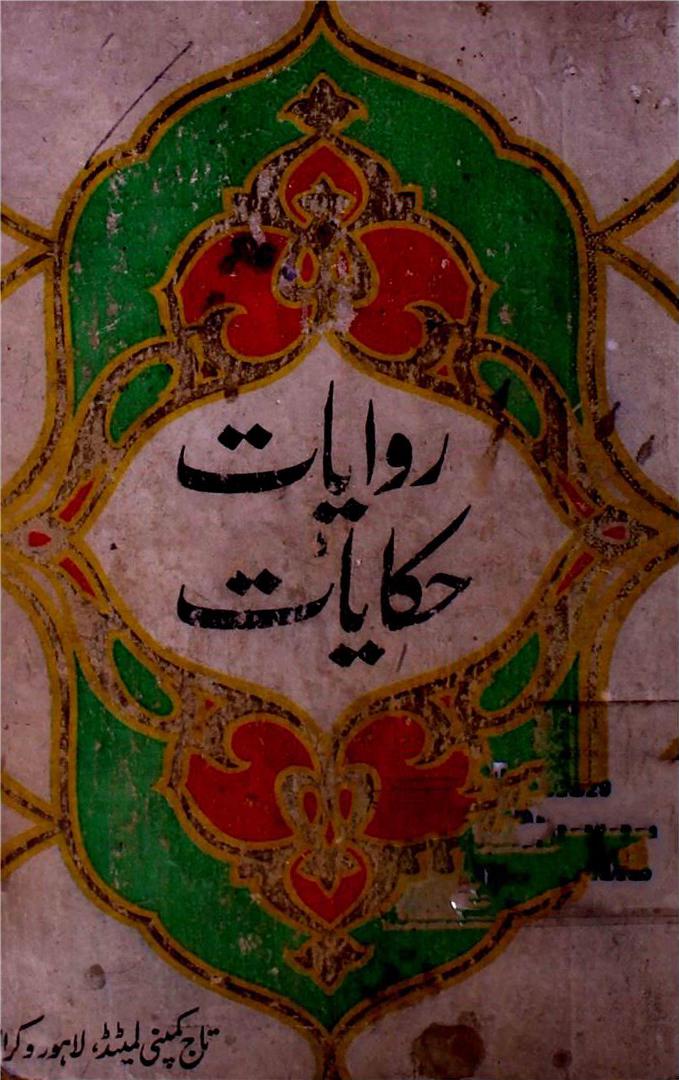 روایات
حکایات
تاج کمپنی لمیٹڈ، لاہور و کرا